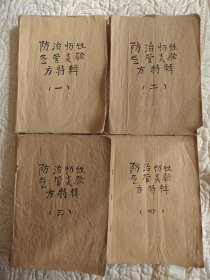 防治慢性
气管炎验
方特輯
(一)
防治慢性
气管炎验
方特輯
(二)
防治慢性
气管炎验
方特輯
(三)
防治慢性
气管炎验
方特輯
(四)